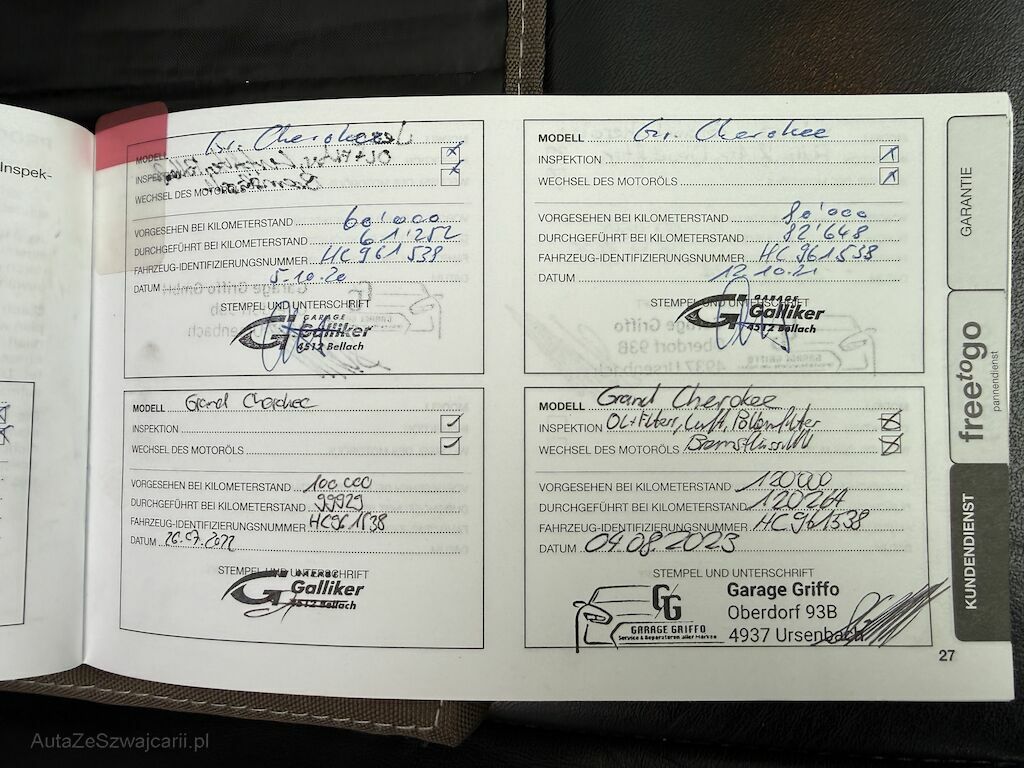 Inspek-
MODELL Gr. Cherokee
INSPEKTION
WECHSEL DES MOTORÖLS
VORGESEHEN BEI KILOMETERSTAND 60'000
DURCHGEFÜHRT BEI KILOMETERSTAND 61'252
FAHRZEUG-IDENTIFIZIERUNGSNUMMER HC961538
DATUM 5.10.20
STEMPEL UND UNTERSCHRIFT
GARAGE
Galliker
4512 Bellach
MODELL Gr. Cherokee
INSPEKTION
WECHSEL DES MOTORÖLS
VORGESEHEN BEI KILOMETERSTAND 80'000
DURCHGEFÜHRT BEI KILOMETERSTAND 82'648
FAHRZEUG-IDENTIFIZIERUNGSNUMMER HC961538
DATUM 12.10.21
STEMPEL UND UNTERSCHRIFT
GARAGE
Galliker
4512 Bellach
MODELL Grand Cherokee
INSPEKTION
WECHSEL DES MOTORÖLS
VORGESEHEN BEI KILOMETERSTAND 100000
DURCHGEFÜHRT BEI KILOMETERSTAND 99929
FAHRZEUG-IDENTIFIZIERUNGSNUMMER HC961538
DATUM 26.07.2022
STEMPEL UND UNTERSCHRIFT
GARAGE
Galliker
4512 Bellach
MODELL Grand Cherokee
INSPEKTION ÖL+Filter, Luft, Pollenfilter
WECHSEL DES MOTORÖLS
VORGESEHEN BEI KILOMETERSTAND 120000
DURCHGEFÜHRT BEI KILOMETERSTAND 120264
FAHRZEUG-IDENTIFIZIERUNGSNUMMER HC961538
DATUM 04.08.2023
STEMPEL UND UNTERSCHRIFT
GG
GARAGE GRIFFO
Service & Reparaturen aller Marken
Garage Griffo
Oberdorf 93B
4937 Ursenbach
GARANTIE
freetogo
pannendienst
KUNDENDIENST
27
AutaZeSzwajcarii.pl